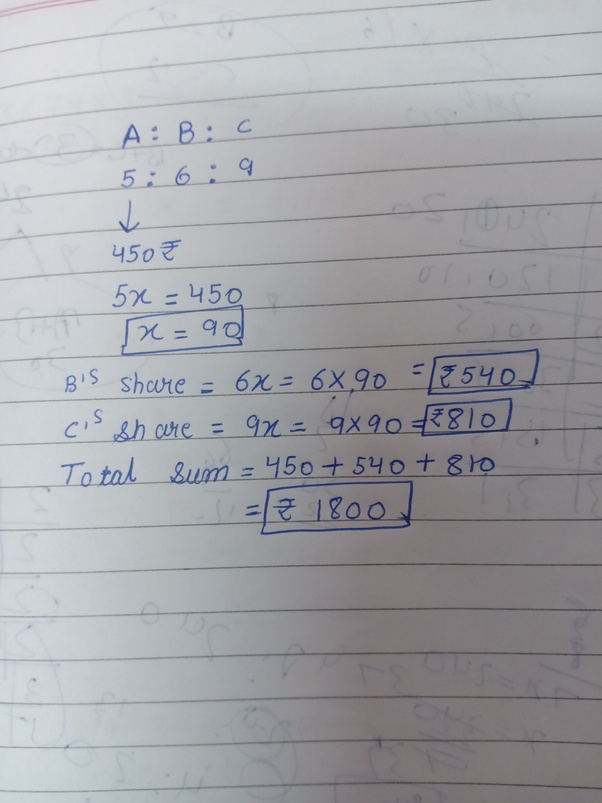 A : B : C
5 : 6 : 9
↓
450₹
5x = 450
x = 90
B'S share = 6x = 6×90 = ₹540
C'S share = 9x = 9×90 = ₹810
Total sum = 450 + 540 + 810
= ₹ 1800